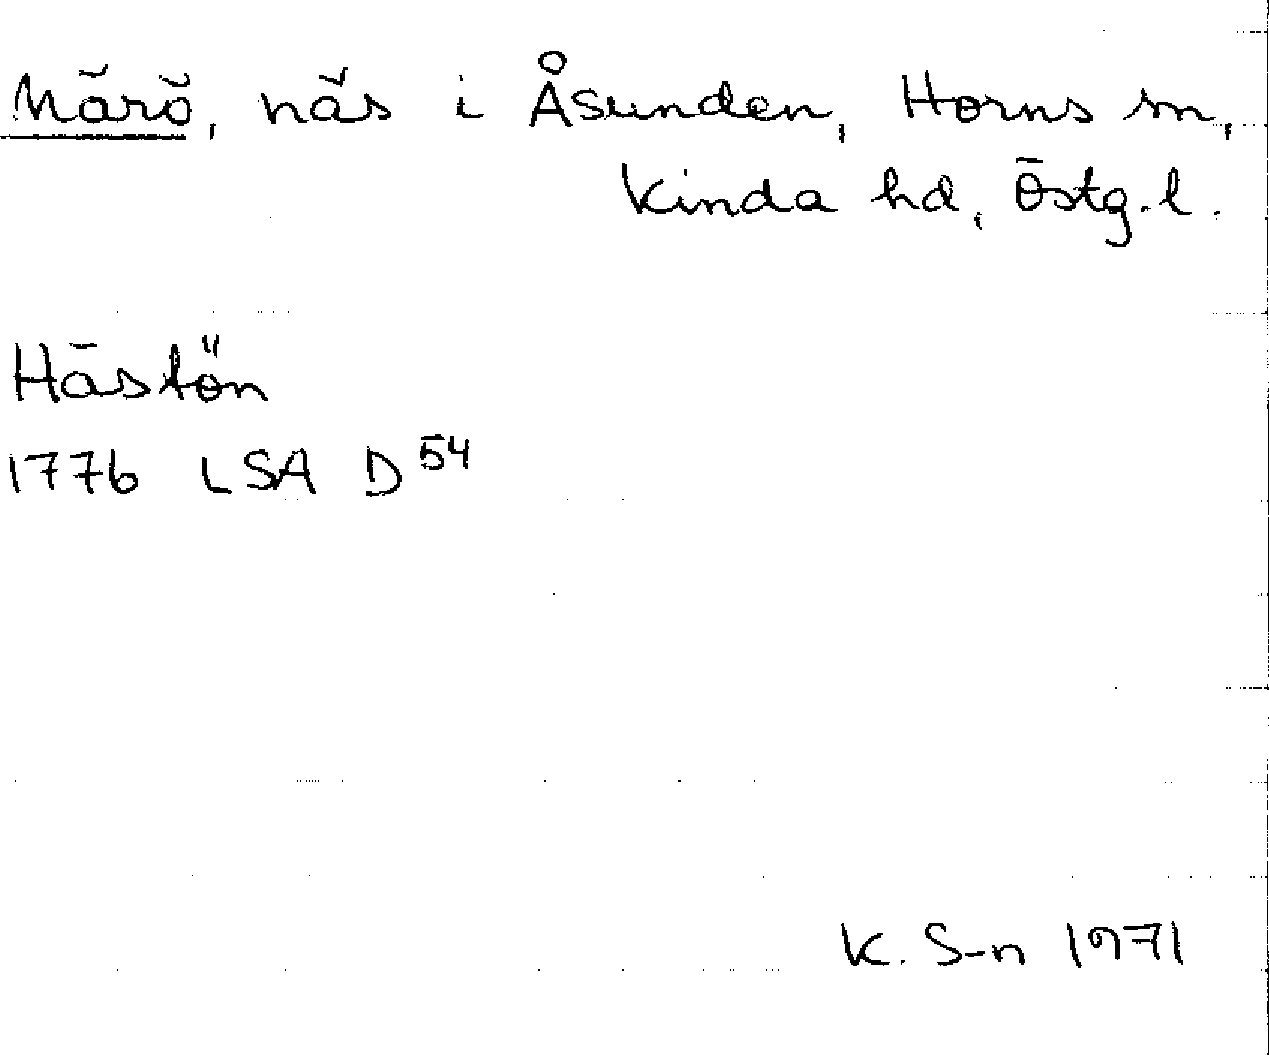 Märö, näs i Åsunden, Horns sn,
Kinda hd, Östg.l.
Hästön
1776 LSA D 54
K. S-n 1971